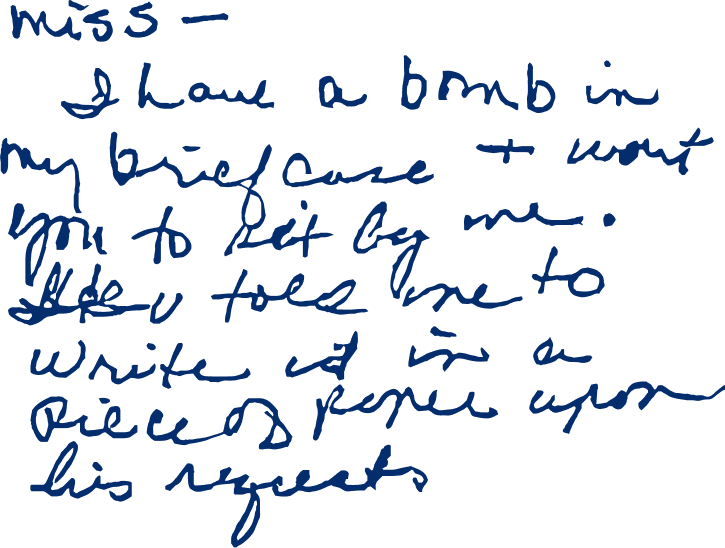 miss —
I have a bomb in
my briefcase + want
you to sit by me.
told me to
write it in a
piece of paper upon
his requests